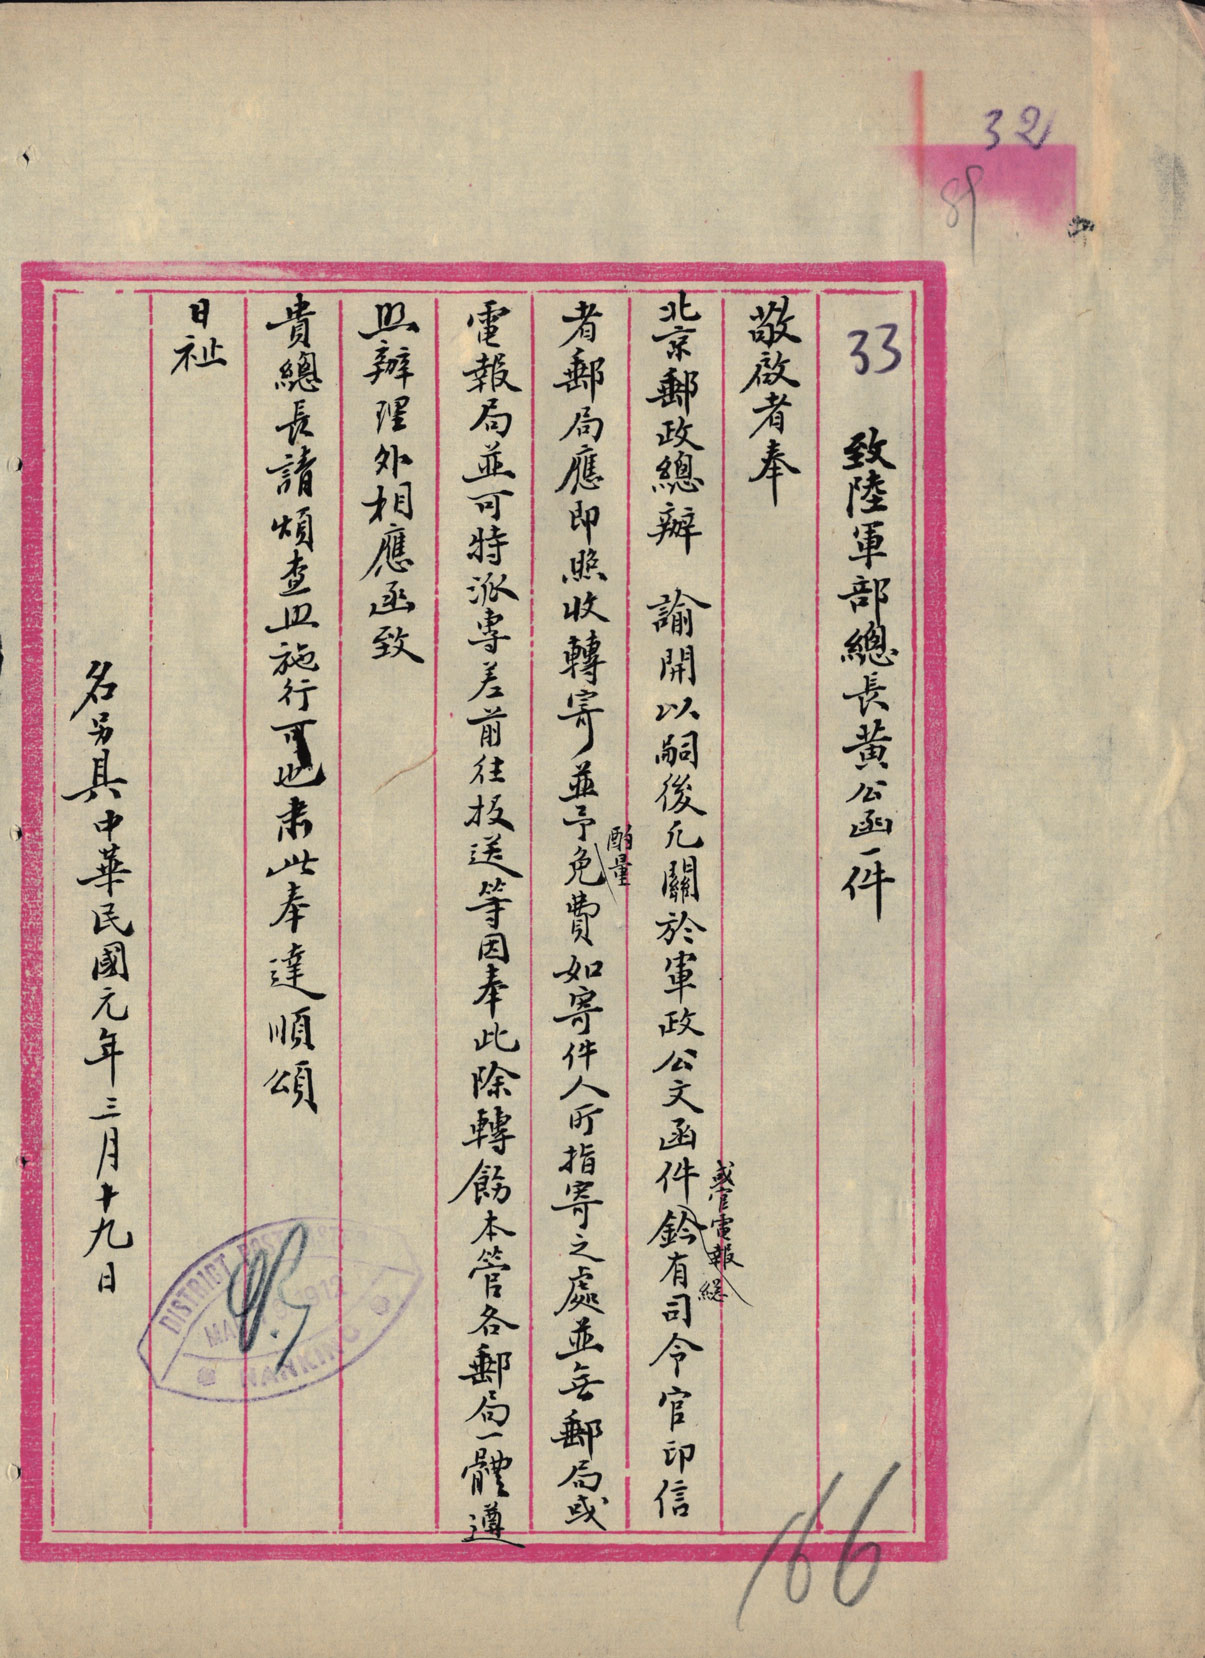 32
89
33 致陸軍部總長黃公函一件
敬啟者奉
北京郵政總辦 諭開以嗣後凡關於軍政公文函件鈐有司令官印信
或官電報總
者郵局應即照收轉寄並予免費如寄件人所指寄之處並無郵局或
酌量
電報局並可特派專差前往投送等因奉此除轉飭本管各郵局一體遵
照辦理外相應函致
貴總長請煩查照施行可也肅此奉達順頌
日祉
名另具中華民國元年三月十九日
DISTRICT POST
MA 1912
NANKING
166